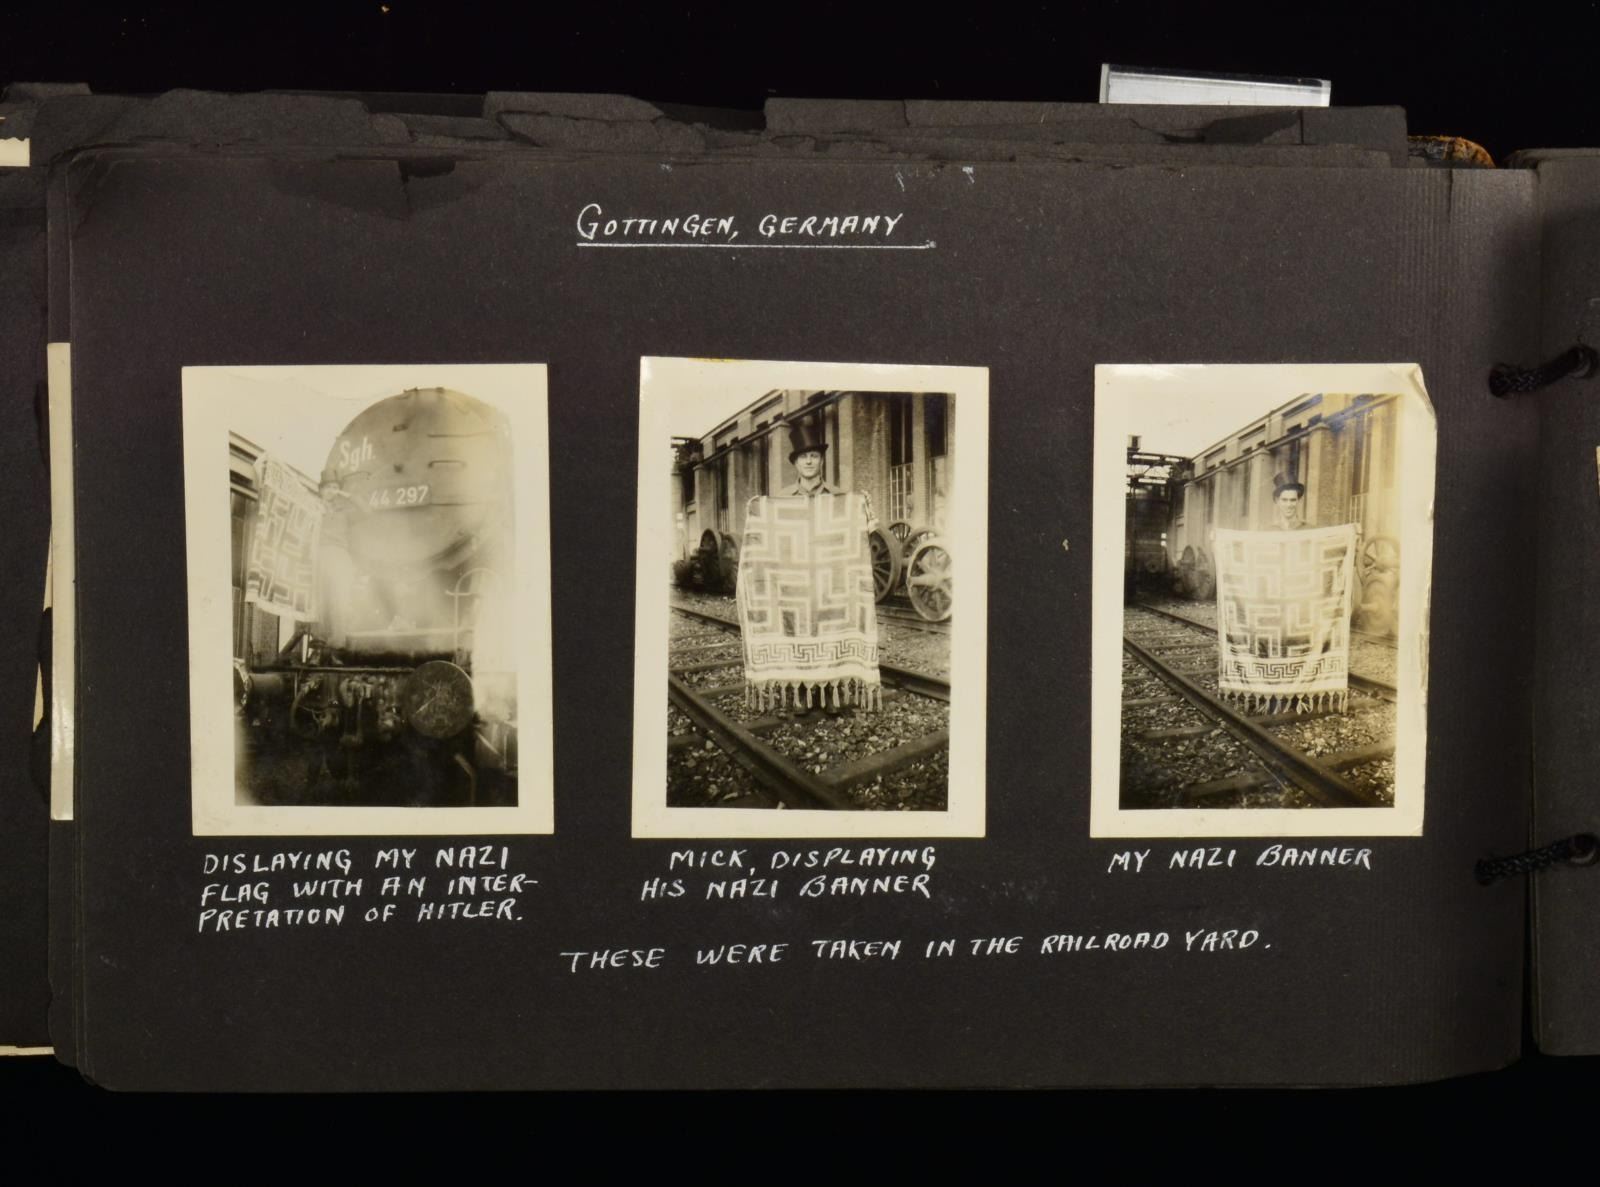 GOTTINGEN, GERMANY
Sgh.
44 297
DISLAYING MY NAZI
FLAG WITH AN INTER-
PRETATION OF HITLER.
MICK, DISPLAYING
HIS NAZI BANNER
MY NAZI BANNER
THESE WERE TAKEN IN THE RAILROAD YARD.